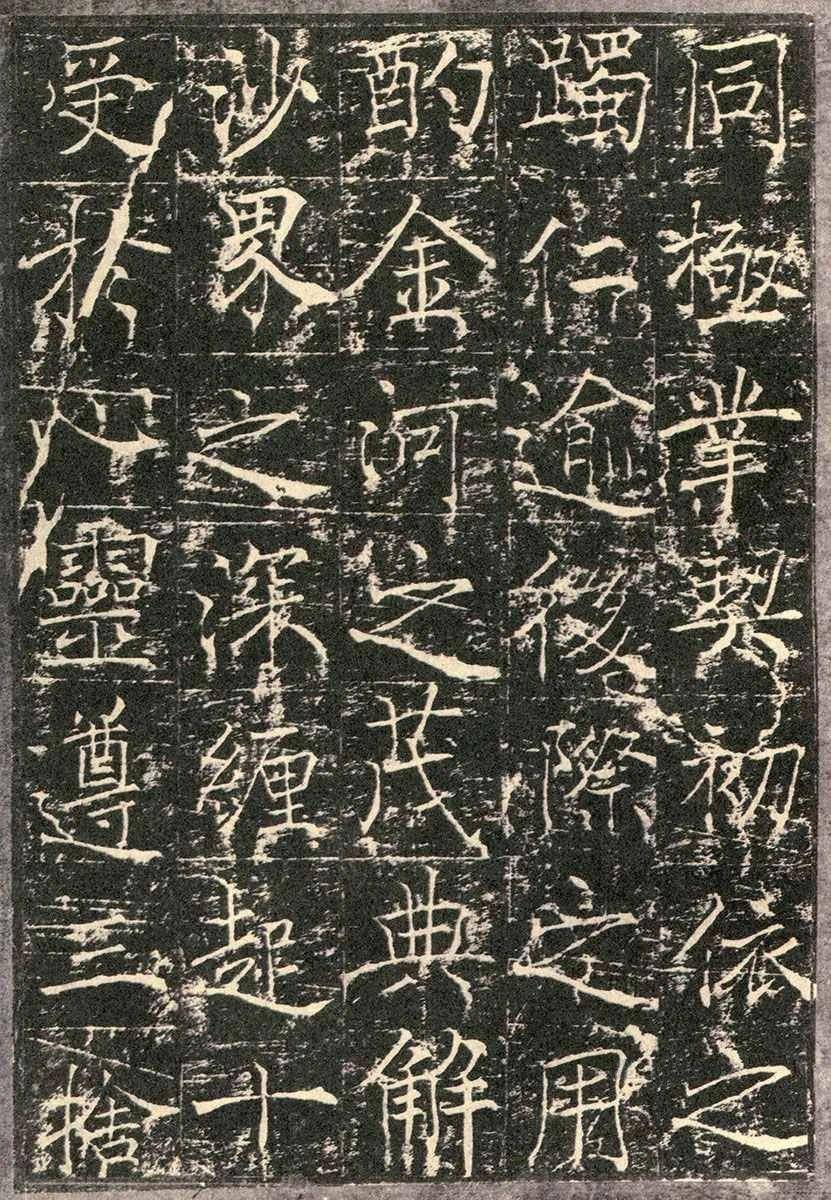 同極業契初依之
躅仁逾後際定用
酌金河之茂典解
沙界之深纏起十
受於心靈遵三捨